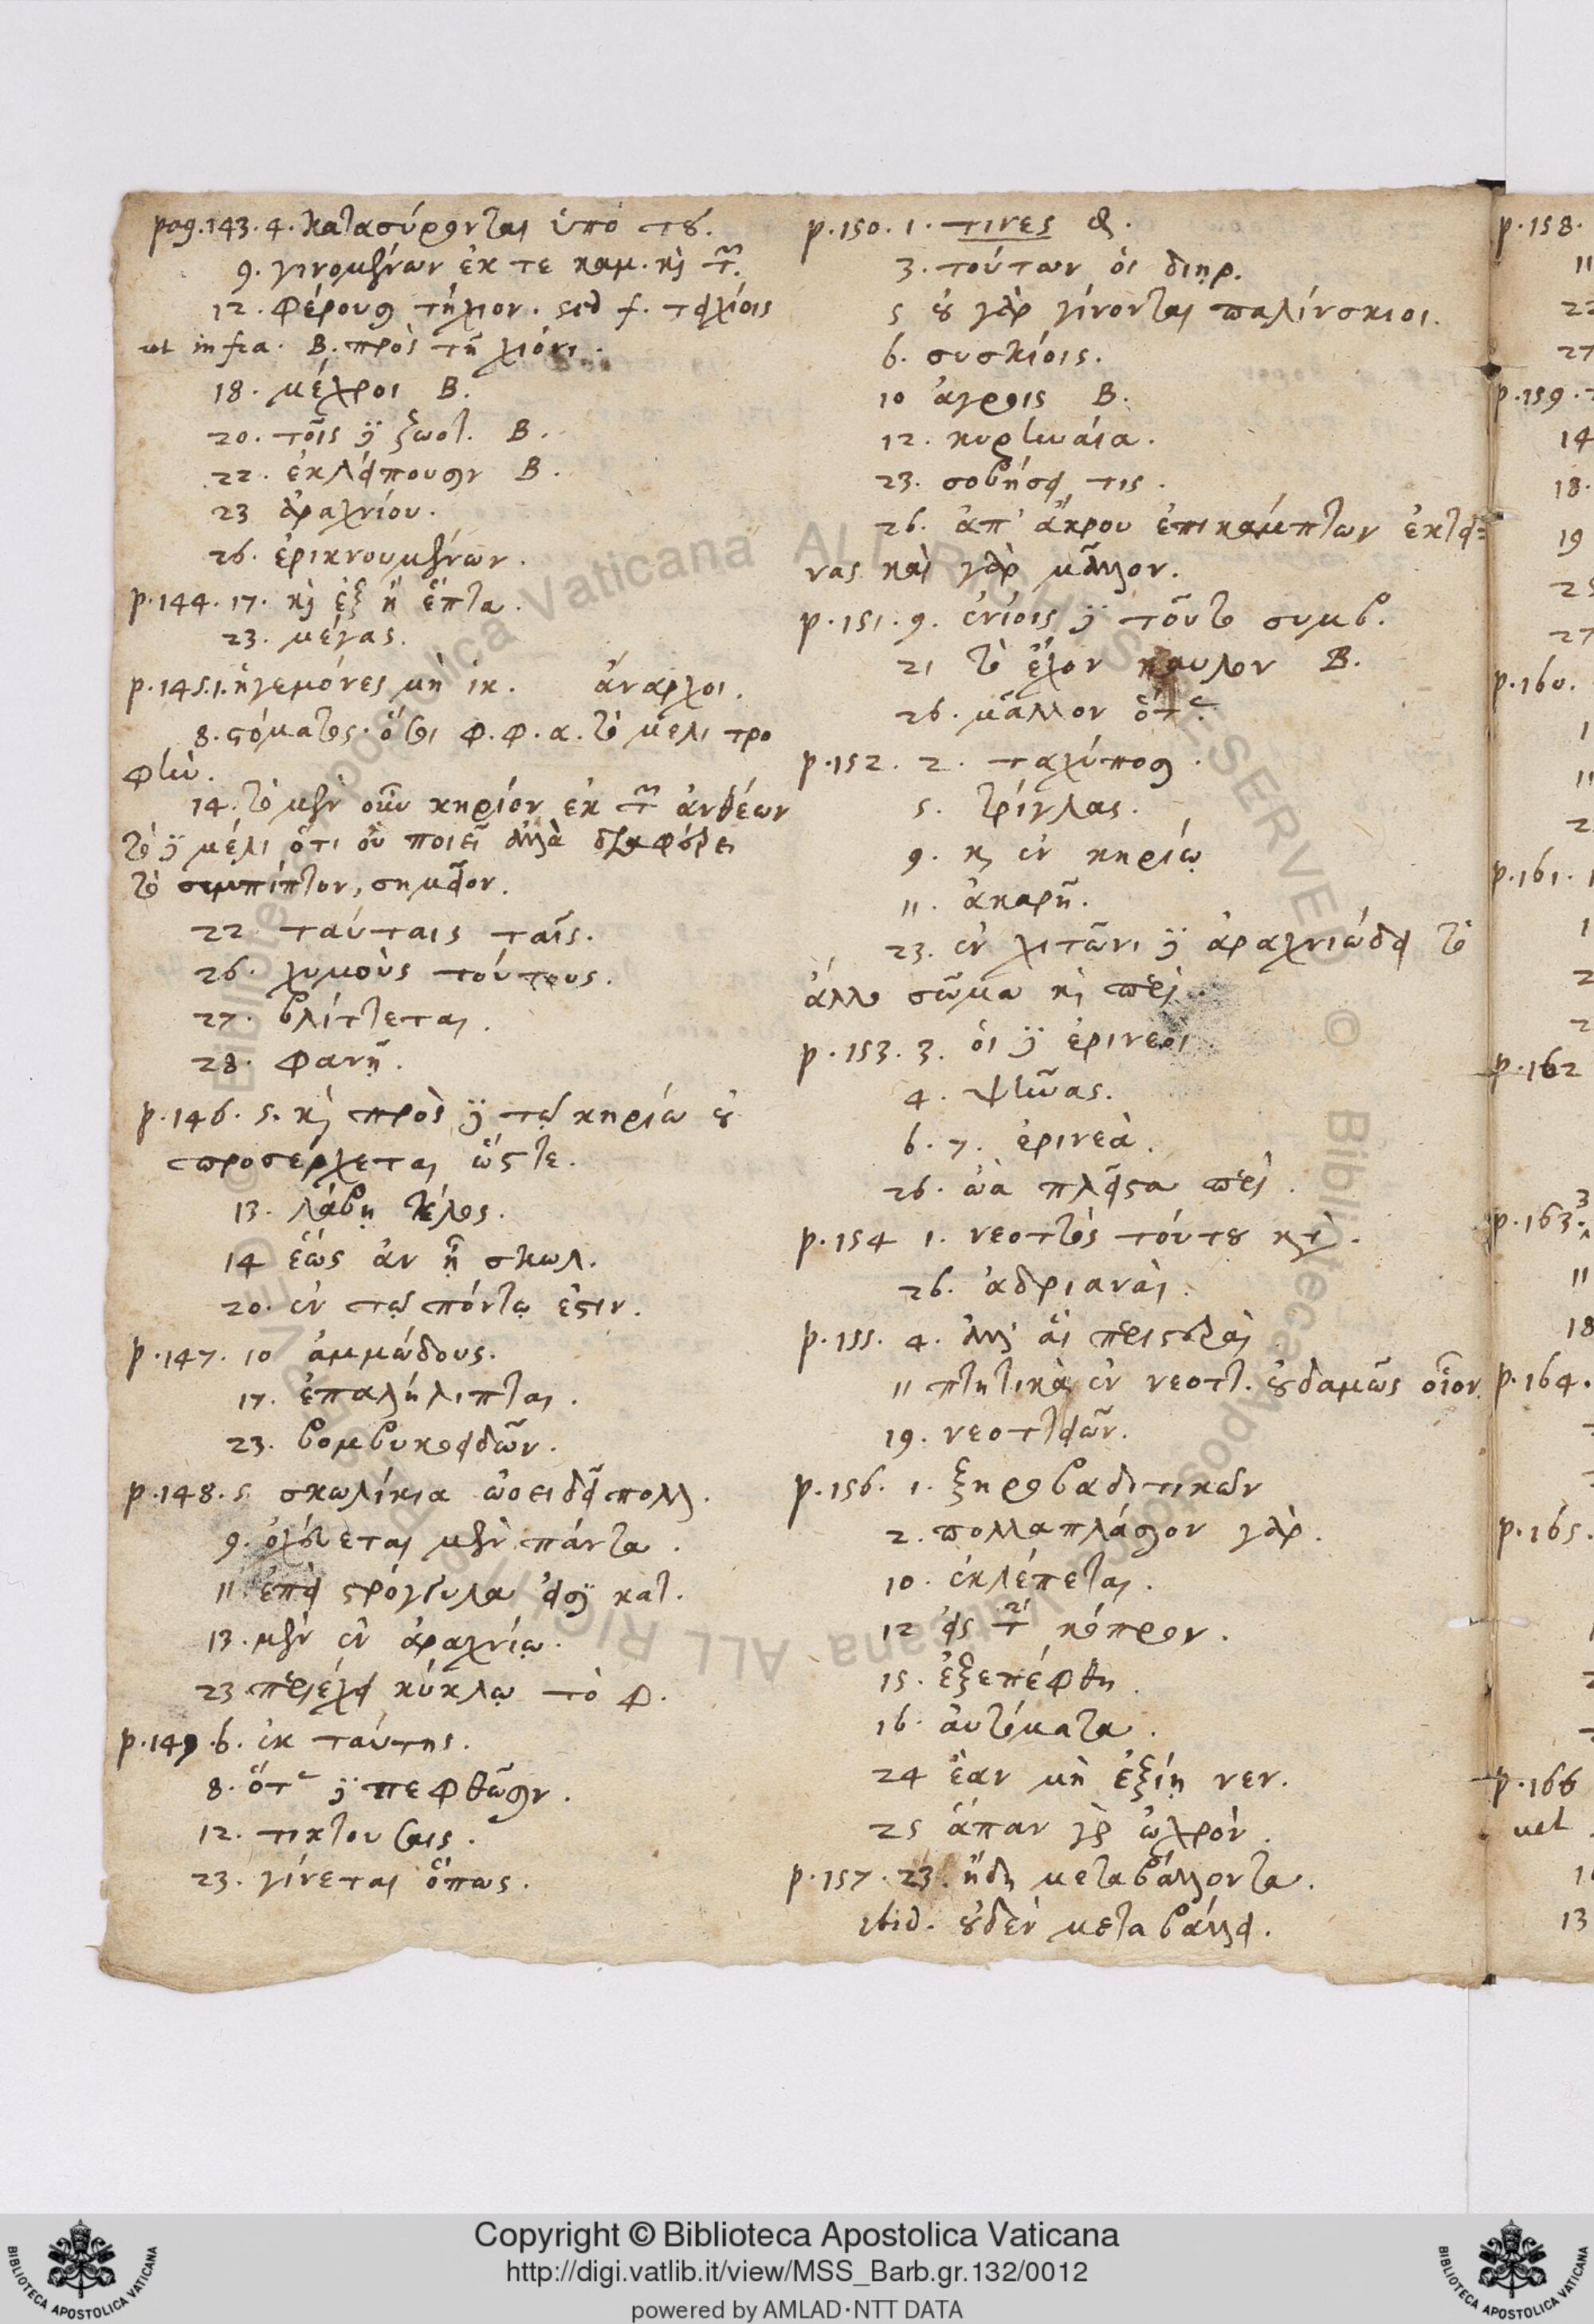 pag. 143. 4. κατασύρονται ὑπὸ τȣ.
9. γινομένων ἐκ τε καμ. κὶ τῶν.
12. φέρουσι τήχιον. sed f. τειχίοις
ut infra. B. πρὸς τῇ χιόνι.
18. μέχροι B.
20. τοῖς δὲ ζωοτ. B.
22. ἐκλείπουσιν B.
23 ἀραχνίου.
26. ἐρικνουμένων.
p. 144. 17. κὶ ἓξ ἢ ἕπτα.
23. μέγας.
p. 145. 1. ἡγεμόνες μὴ ἱκ. ἄναρχοι.
8. στόματος. ὅτι φ. φ. α. τὸ μέλι τρο
φὴν.
14. τὸ μὲν οὖν κηρίον ἐκ τῶν ἀνθέων
τὸ δὲ μέλι ὅτι οὐ ποιεῖ ἀλλὰ φέρει
τὸ συμπίπτον, σημεῖον.
22 ταύταις ταῖς.
26. χυμοὺς τούτους.
27. βλίττεται.
28. φανῇ.
p. 146. 5. κὶ πρὸς δὲ τῷ κηρίω ȣ
προσέρχεται ὥστε.
13. λάβῃ τέλος.
14 ἕως ἀν ᾖ σκωλ.
20. ἐν τῷ πόντῳ ἐστιν.
p. 147. 10 ἀμμώδους.
17. ἐπαλήλιπται.
23. βομβυκοειδῶν.
p. 148. 5. σκωλίκια ὠοειδῆ πολλ.
9. ὀχεύεται μὲν πάντα.
11. ἐπεὶ στρόγγυλα εἰσὶ κατ.
13. μὲν ἐν ἀραχνίῳ.
23 περιέχει κύκλῳ τὸ φ.
p. 149. 6. ἐκ ταύτης.
8. ὅταν δὲ πεφθῶσιν.
12. τικτουσαις.
23. γίνεται ὅπως.
p. 150. 1. τινες &.
3. τούτων ὁι διῃρ.
5 ȣ γὰρ γίνονται παλίνσκιοι.
6. συσκίοις.
10 ἀγροις B.
12. κυρηναία.
23. σοβήσει τις.
26. ἀπ' ἄκρου ἐπικάμπτων ἐκτεί-
νας καὶ γὰρ μᾶλλον.
p. 151. 9. ἐνίοις δὲ τοῦτο συμβ.
21 τὸ ἔχον καυλον B.
26. μᾶλλον ὅταν.
p. 152. 2. ταχύποσι.
5. τρίγλας.
9. κὶ ἐν κηρίῳ
11. ἀκαρῆ.
23. ἐν χιτῶνι δὲ ἀραχνιώδει τὸ
ἄλλο σῶμα κὶ περὶ.
p. 153. 3. ὁι δὲ ἐρινεοὶ
4. ψῆνας.
6. 7. ἐρινεὰ.
26. ὠὰ πλεῖστα περὶ.
p. 154 1. νεοττὸς τούτȣ κὶ.
26. ἀδριαναὶ.
p. 155. 4. ἀλλ' αἱ περιστεραὶ
11 πτητικὰ ἐν νεοττ. ȣδαμῶς οἷον
19. νεοττειῶν.
p. 156. 1. ξηροβατικῶν
2. πολλαπλάσιον γὰρ.
10. ἐκλέπεται.
12 εἰς τὴν κόπρον.
15. ἐξεπέφθη.
16. ἀυτόματα.
24 ἐὰν μὴ ἐξίῃ νεν.
25 ἅπαν γὰρ ὠχρὸν.
p. 157. 23. ἤδη μεταβάλλοντα.
ibid. ȣδὲν μεταβάλλει.
p. 158.
11
22
27
p. 159.
14
18.
19
25
27
p. 160.
p. 161.
p. 162
p. 163.
11
18
p. 164.
p. 165.
p. 166
vel
13
Copyright © Biblioteca Apostolica Vaticana
http://digi.vatlib.it/view/MSS_Barb.gr.132/0012
powered by AMLAD·NTT DATA
BIBLIOTECA APOSTOLICA VATICANA
BIBLIOTECA APOSTOLICA VATICANA